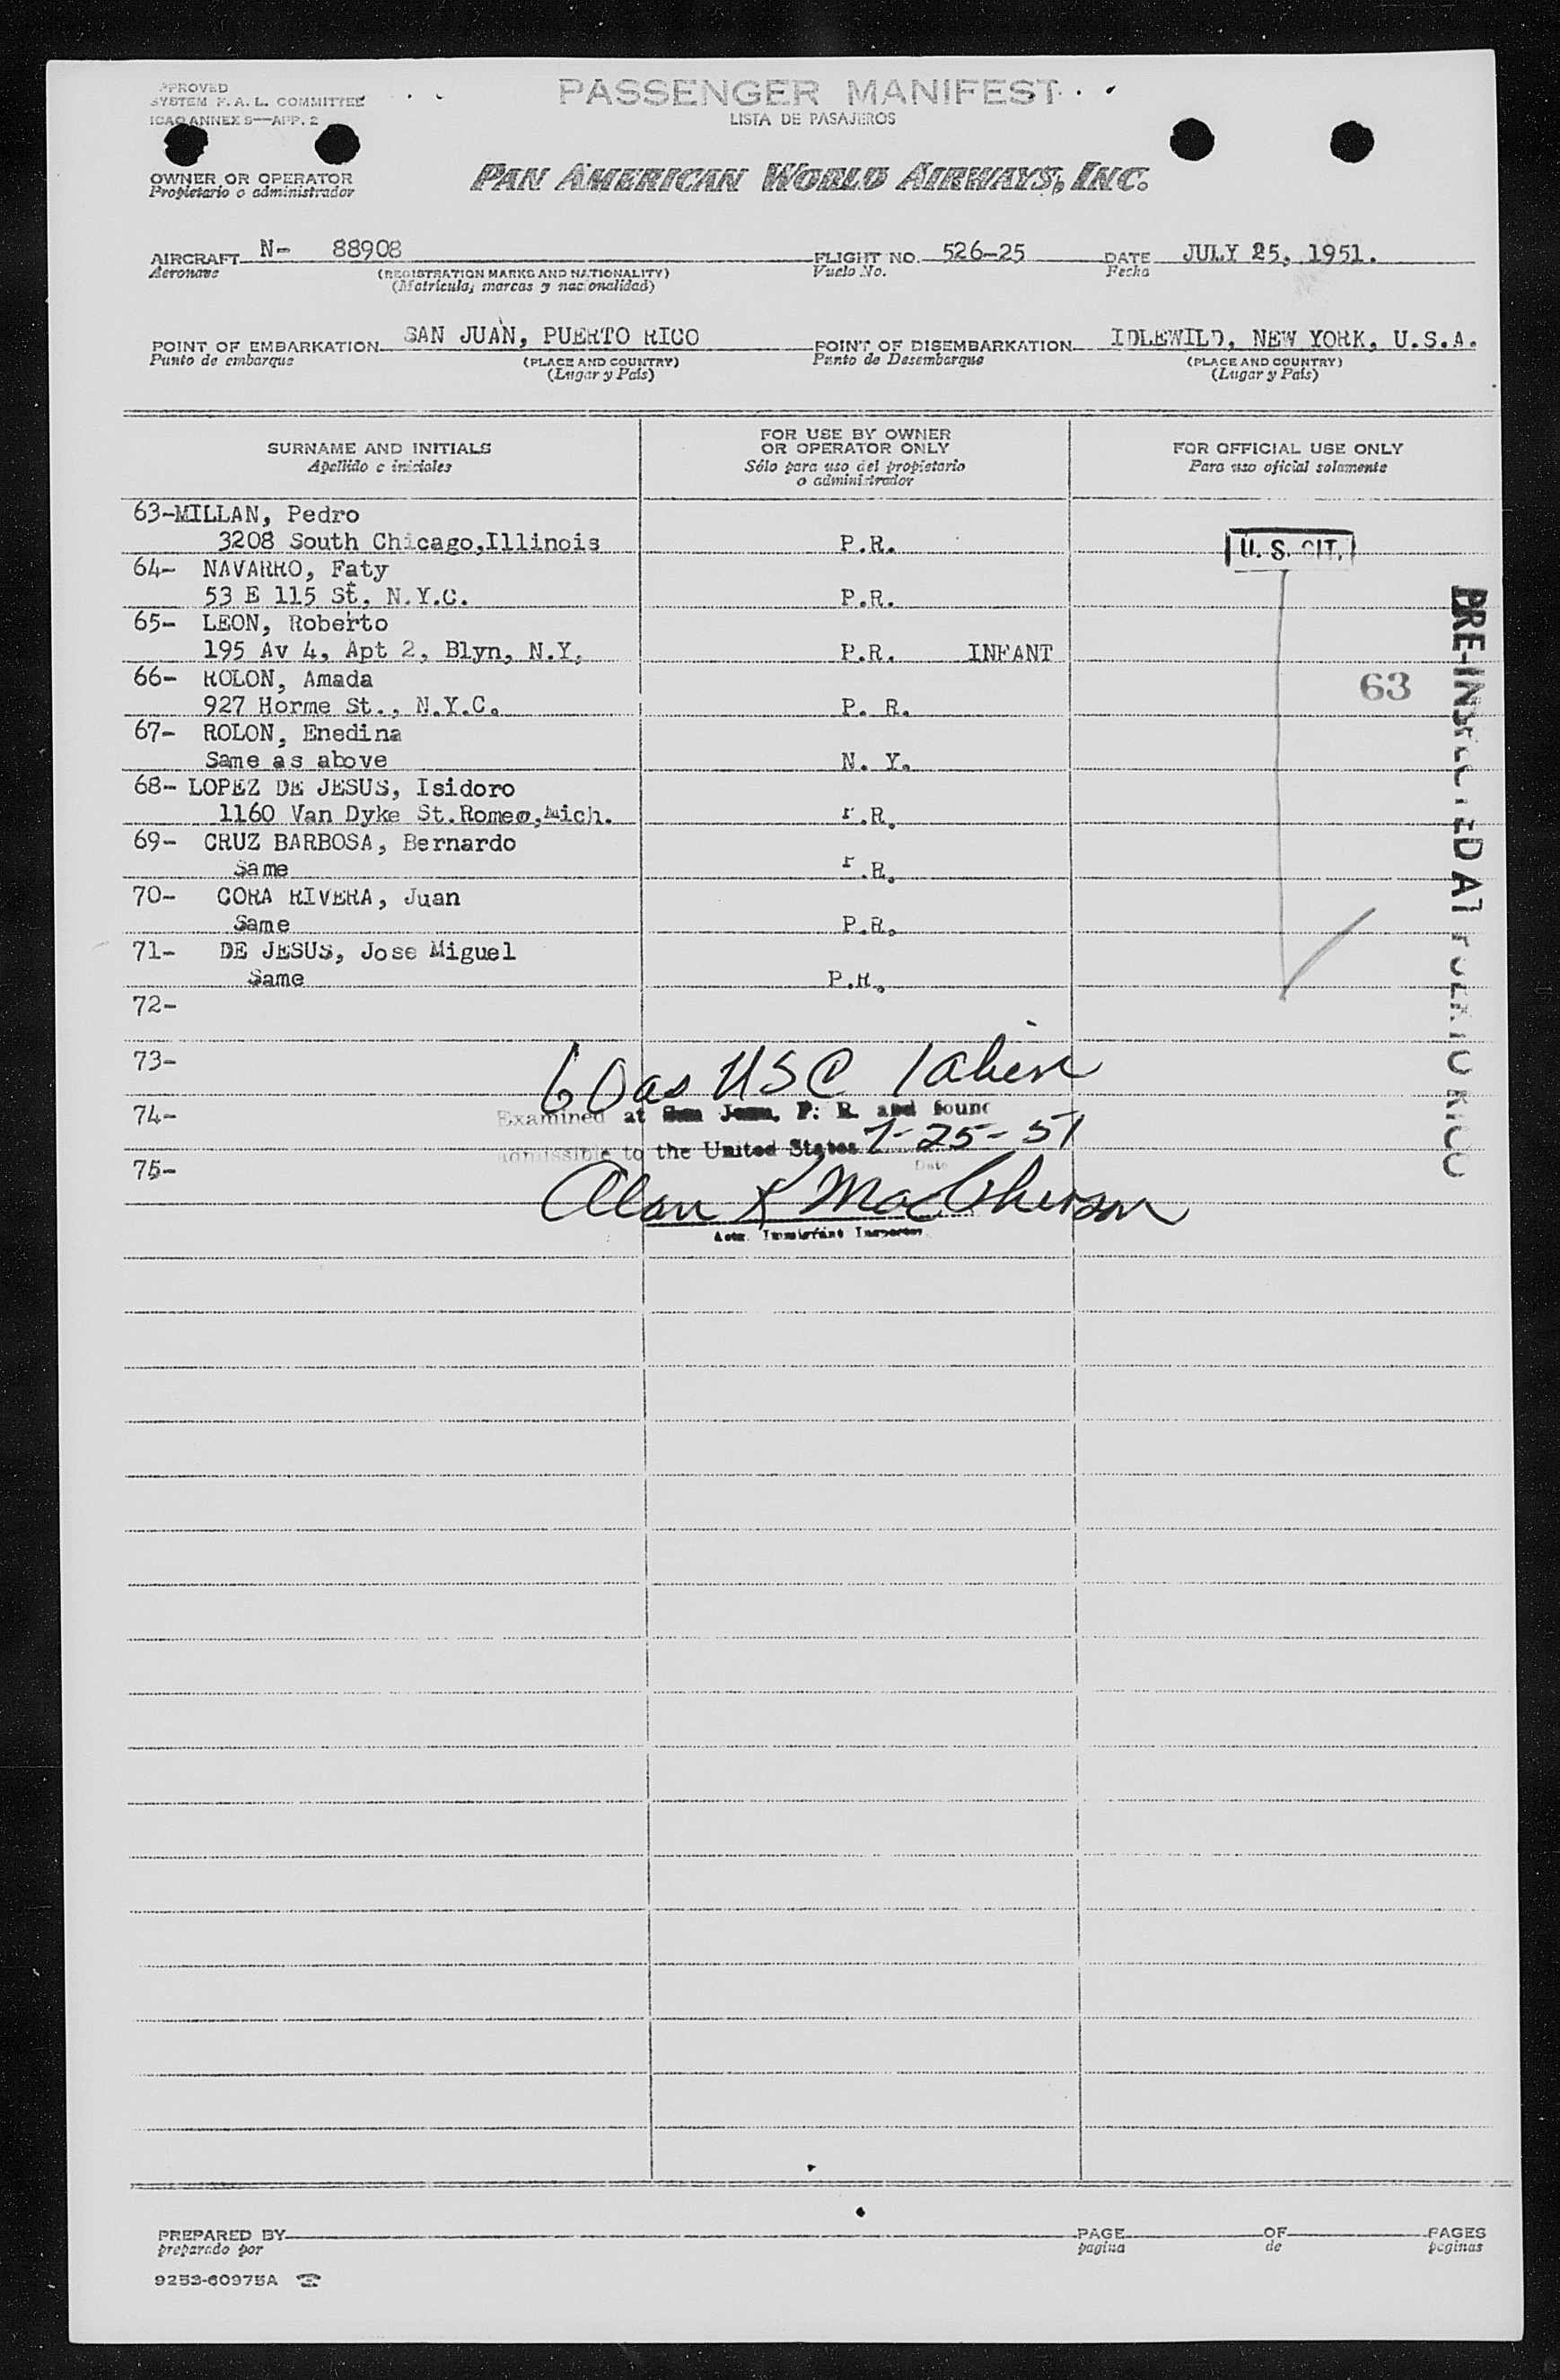 PPROVED
SYSTEM F.A.L. COMMITTEE
ICAO ANNEX 9—APP. 2
PASSENGER MANIFEST
LISTA DE PASAJEROS
OWNER OR OPERATOR
Propietario o administrador
PAN AMERICAN WORLD AIRWAYS, INC.
AIRCRAFT N- 88908 FLIGHT NO. 526-25 DATE JULY 25, 1951.
Aeronave (REGISTRATION MARKS AND NATIONALITY) Vuelo No. Fecha
(Matricula, marcas y nacionalidad)
POINT OF EMBARKATION SAN JUAN, PUERTO RICO POINT OF DISEMBARKATION IDLEWILD, NEW YORK, U.S.A.
Punto de embarque (PLACE AND COUNTRY) Punto de Desembarque (PLACE AND COUNTRY)
(Lugar y País) (Lugar y País)
SURNAME AND INITIALS FOR USE BY OWNER OR OPERATOR ONLY FOR OFFICIAL USE ONLY
Apellido e iniciales Sólo para uso del propietario o administrador Para uso oficial solamente
63-MILLAN, Pedro
3208 South Chicago,Illinois P.R. U. S. CIT.
64- NAVARRO, Faty
53 E 115 St, N.Y.C. P.R.
65- LEON, Roberto
195 Av 4, Apt 2, Blyn, N.Y. P.R. INFANT
66- ROLON, Amada 63
927 Horme St., N.Y.C. P. R.
67- ROLON, Enedina
Same as above N. Y.
68- LOPEZ DE JESUS, Isidoro
1160 Van Dyke St.Romeo,Mich. P.R.
69- CRUZ BARBOSA, Bernardo
Same P.R.
70- CORA RIVERA, Juan
Same P.R.
71- DE JESUS, Jose Miguel
Same P.R.
72-
73-
60 as USC 1 alien
74- Examined at San Juan, P. R. and found
admissible to the United States 7-25-51
Date
75-
Alan K MacPherson
Actg. Immigrant Inspector
PRE-INSPECTED AT PUERTO RICO
PREPARED BY PAGE OF PAGES
preparado por pagina de paginas
9253-60975A